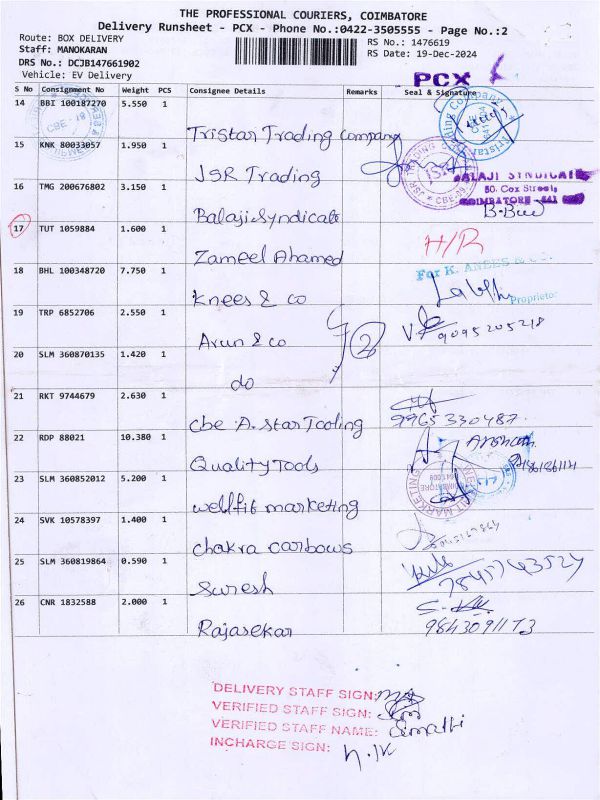 THE PROFESSIONAL COURIERS, COIMBATORE
Delivery Runsheet - PCX - Phone No.:0422-3505555 - Page No.:2
Route: BOX DELIVERY
RS No.: 1476619
Staff: MANOKARAN
RS Date: 19-Dec-2024
DRS No.: DCJB147661902
Vehicle: EV Delivery
PCX
S No Consignment No Weight PCS Consignee Details Remarks Seal & Signature
14 BBI 100187270 5.550 1
Tristar Trading Company
15 KNK 80033057 1.950 1
JSR Trading
16 TMG 200676802 3.150 1
BALAJI SYNDICATE
50. Cox Street,
COIMBATORE - 641
Balaji Syndicate
17 TUT 1059884 1.600 1
H/R
Zameel Ahamed
18 BHL 100348720 7.750 1
For K. ANEES & Co.
Proprietor
Knees & co
19 TRP 6852706 2.550 1
9095205218
Arun & co
2
20 SLM 360870135 1.420 1
do
21 RKT 9744679 2.630 1
9965330487
cbe A. star Tooling
22 RDP 88021 10.380 1
Quality Tools
23 SLM 360852012 5.200 1
wellfit marketing
24 SVK 10578397 1.400 1
chakra carbows
25 SLM 360819864 0.590 1
Suresh
26 CNR 1832588 2.000 1
Rajasekar
DELIVERY STAFF SIGN:
VERIFIED STAFF SIGN:
VERIFIED STAFF NAME:
INCHARGE SIGN: